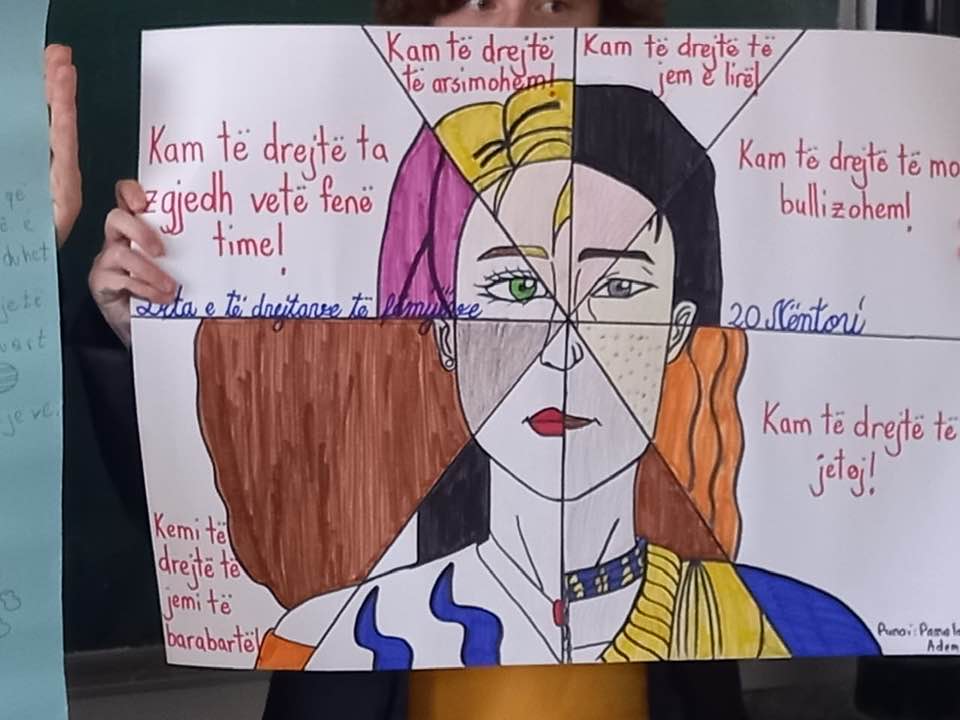 Kam të drejtë
të arsimohem!
Kam të drejtë të
jem e lirë!
Kam të drejtë ta
zgjedh vetë fenë
time!
Kam të drejtë të mo
bullizohem!
Dita e të drejtave të fëmijëve
20 Nëntori
Kam të drejtë të
jetoj!
Kemi të
drejtë të
jemi të
barabartë!
Punoi: Pamela
Adem
që
duhet
jetë